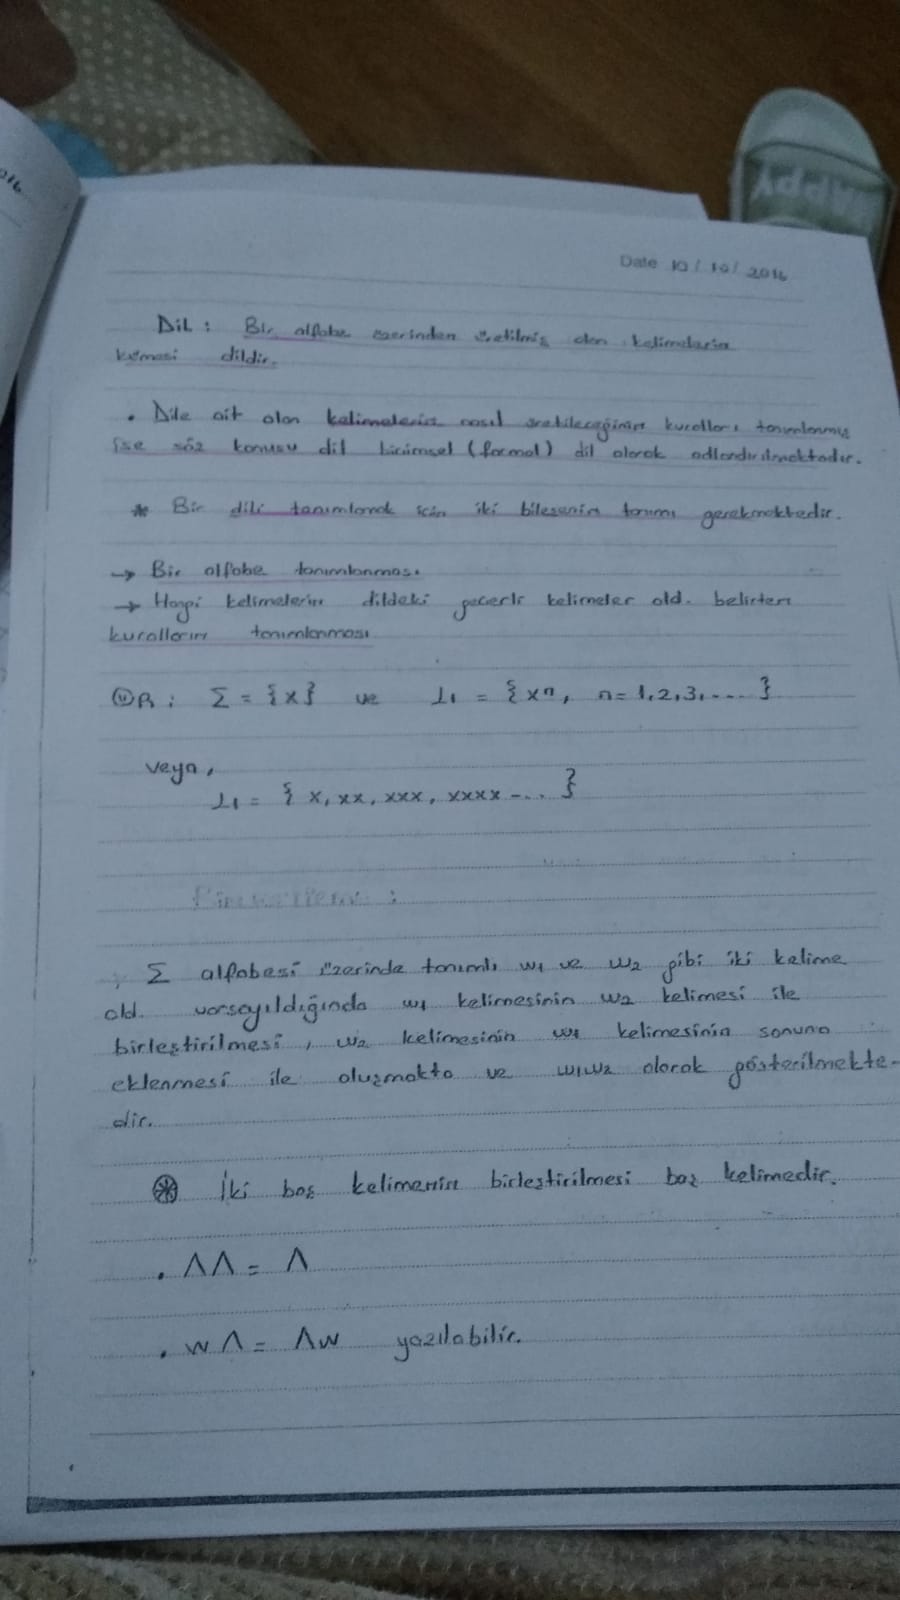 Date 10 / 10 / 2016
Dil : Bir alfabe üzerinden üretilmiş olan kelimelerin
kümesi dildir.
• Dile ait olan kelimelerin nasıl üretileceğinin kuralları tanımlanmış
ise söz konusu dil biçimsel (formal) dil olarak adlandırılmaktadır.
* Bir dili tanımlamak için iki bileşenin tanımı gerekmektedir.
→ Bir alfabe tanımlanması.
→ Hangi kelimelerin dildeki geçerli kelimeler old. belirten
kuralların tanımlanması
ÖR : Σ = {x} ve L1 = { xⁿ, n= 1,2,3,.... }
veya,
L1 = { x, xx, xxx, xxxx -... }
Σ alfabesi üzerinde tanımlı w1 ve w2 gibi iki kelime
old. varsayıldığında w1 kelimesinin w2 kelimesi ile
birleştirilmesi, w2 kelimesinin w1 kelimesinin sonuna
eklenmesi ile oluşmakta ve w1w2 olarak gösterilmekte-
dir.
* İki boş kelimenin birleştirilmesi boş kelimedir.
• ΛΛ = Λ
• wΛ = Λw yazılabilir.